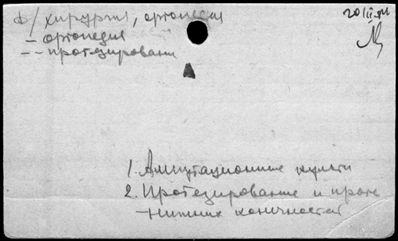 ф/ хирургия, ортопедия
20/II
– ортопедия
– – протезирование
1. Ампутационные культи
2. Протезирование и проте
– нижних конечностей